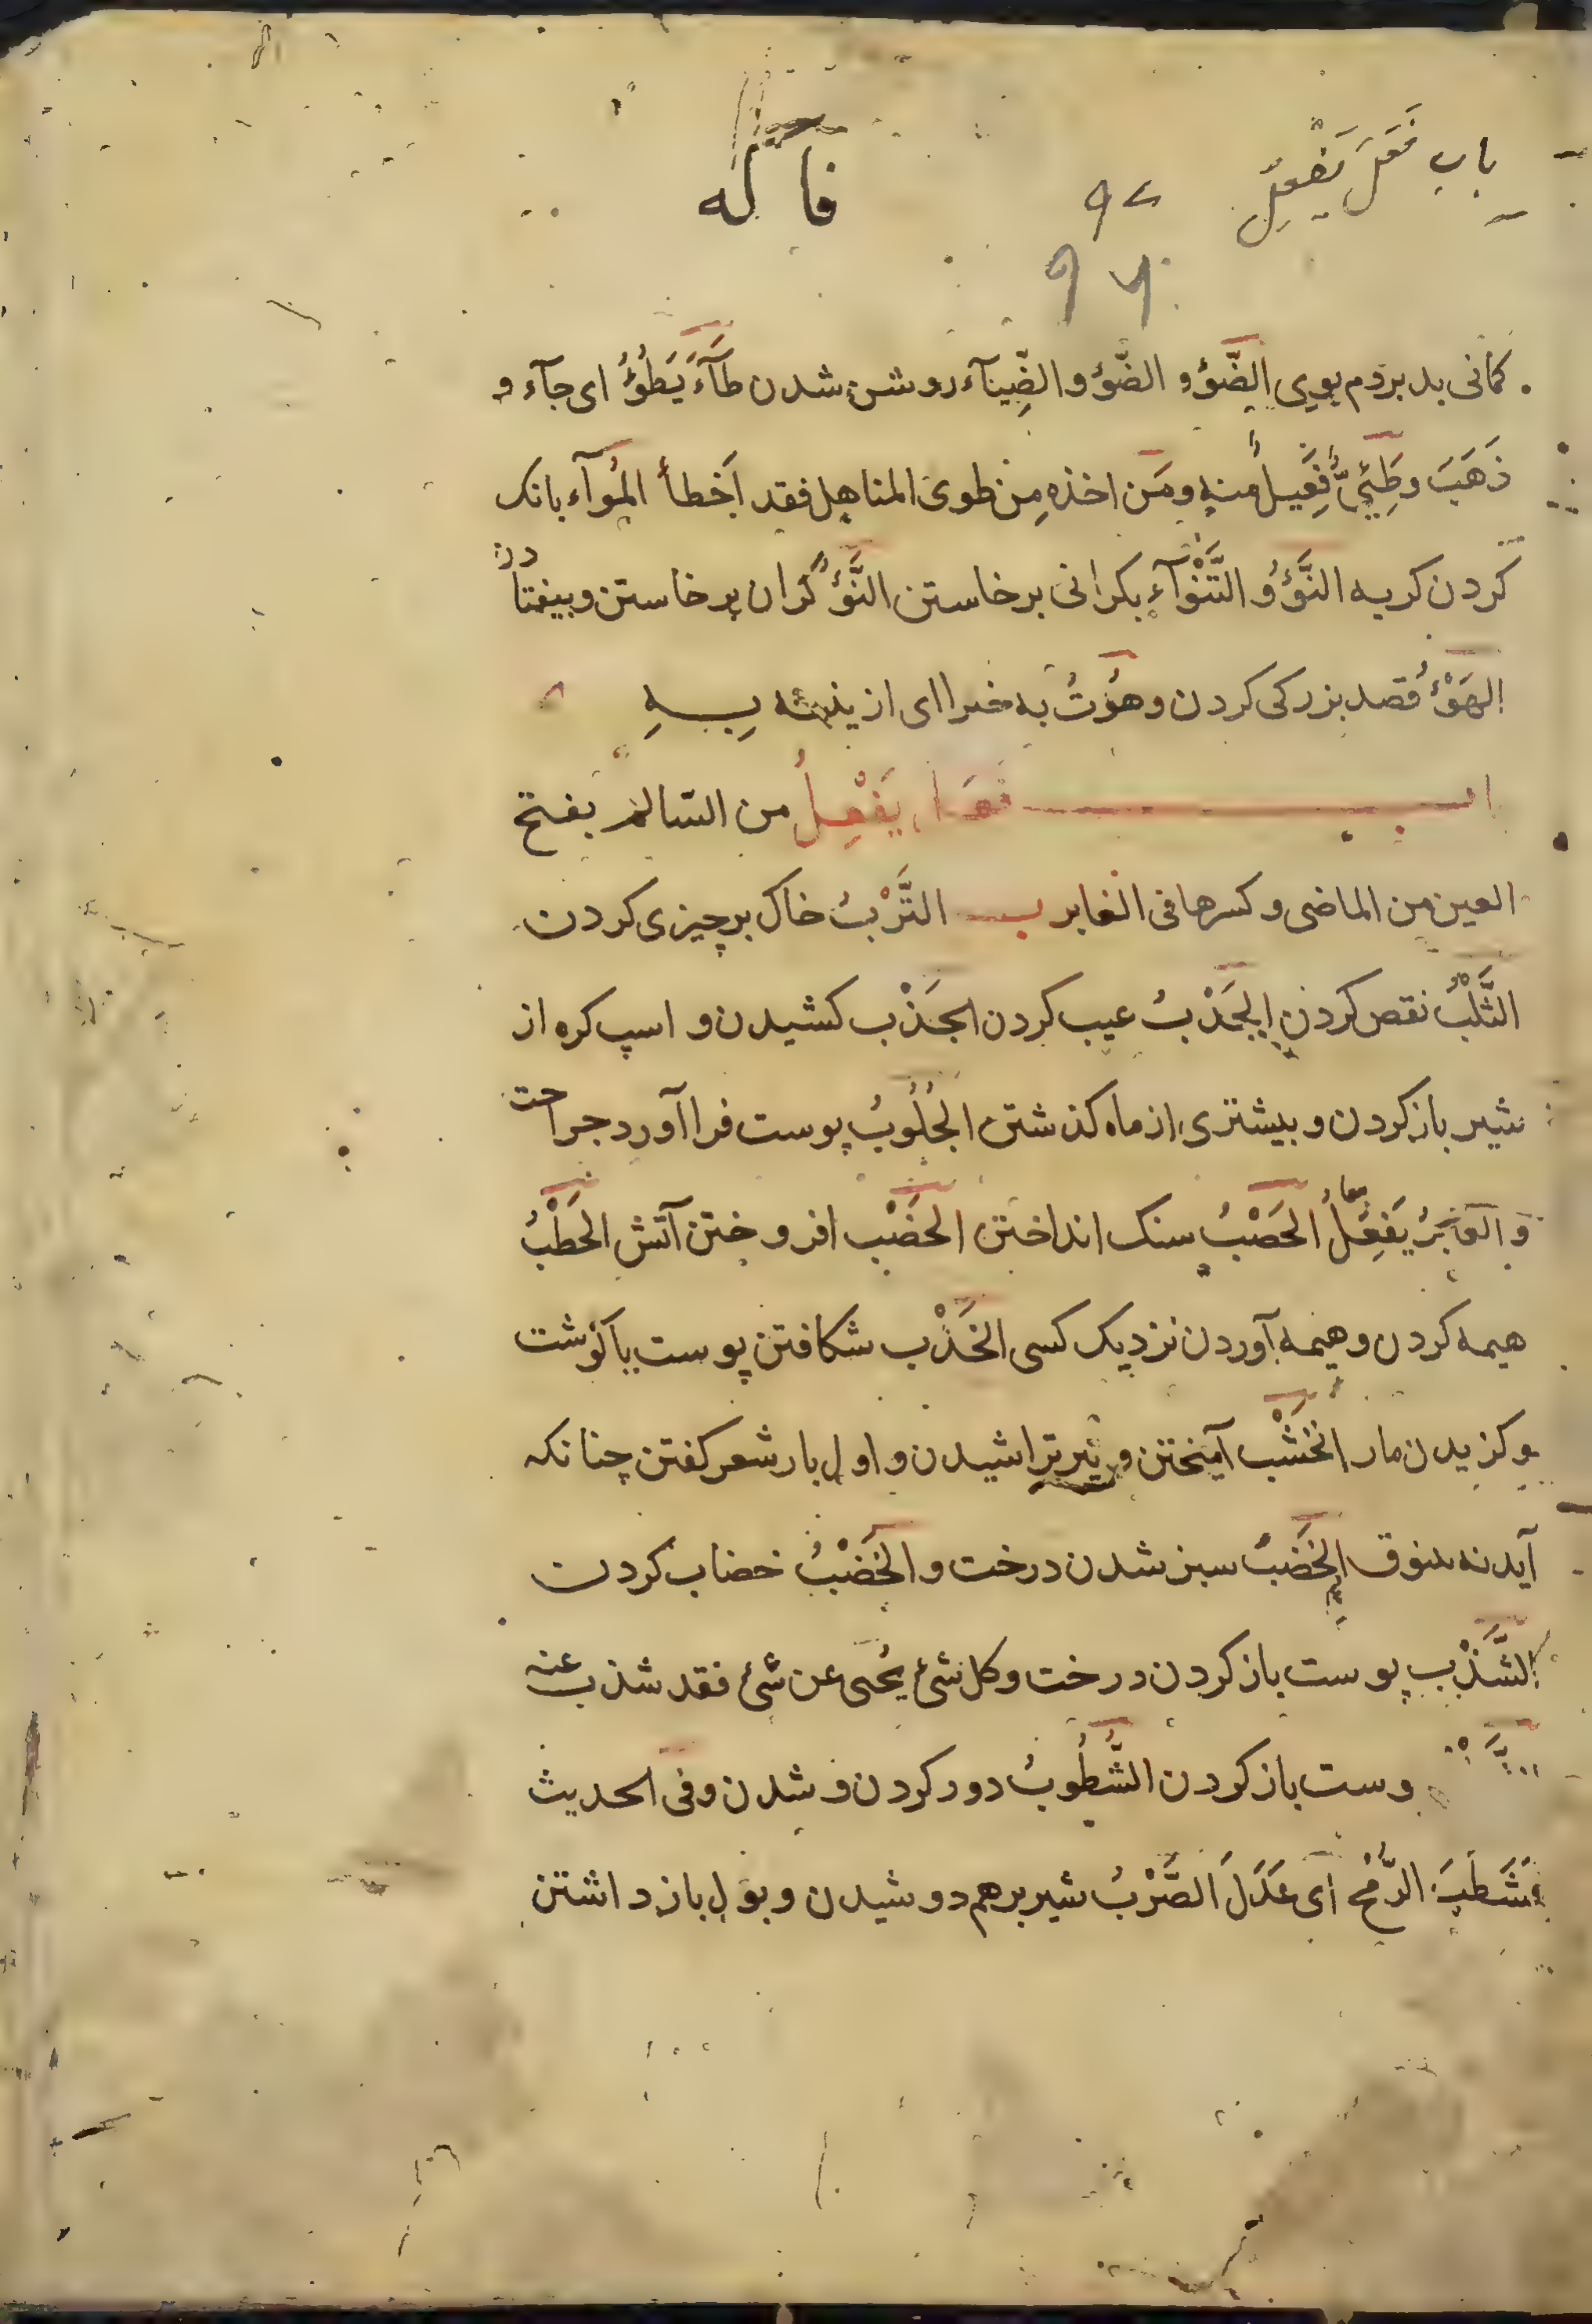 باب فَعَلَ يَفْعِلُ
فا له
کمانی بد بردم بوی الضَّوْؤُ و الضُّوْؤُ و الضِّیآء روشن شدن طَآءَ یَطُوْؤُ ای جآء و
ذَهَبَ و طَیِّئٌ فَیْعِلٌ منه و مَن اخذه مِن طوی المناهل فقد اَخطأ المُوآء بانک
کردن کربه النَّوْؤُ و التَّنْوآء بکرانی برخاستن النَّوْؤُ کران برخاستن و بیفتادن
الهَوْءُ قصد بزرکی کردن و هُؤتُ به خیرا ای ازینته بِهِ
باب فَعَلَ یَفْعِلُ من السّالم بفتح
العین من الماضی و کسرها فی الغابر ب التَّرْبُ خاک بر چیزی کردن
الثَّلْبُ نقص کردن الجَدْبُ عیب کردن الجَذْب کشیدن و اسپ کره از
شیر باز کردن و بیشتری از ماه کذشتن الجُلُوبُ پوست فرا آورد جراحت
و الغابرُ یَفعُلُ الحَصْبُ سنک انداختن الحَضْب افروختن آتش الحَطْبُ
هیمه کردن و هیمه آوردن نزدیک کسی الخَذْب شکافتن پوست با کوشت
و کزیدن مار الخَشْب آمیختن و تیر تراشیدن و اول بار شعر کفتن چنانکه
آید نه بنوق الخَضبُ سبز شدن درخت و الخَضْبُ خضاب کردن
الشَّذْب پوست باز کردن درخت و کل شئ یُحی عن شئ فقد شذب عنه
وست باز کردن الشُّطُوبُ دور کردن و شدن و فی الحدیث
فشَطَبَ الرُّمْح ای عَدَلَ الصَّرْبُ شیر برهم دوشیدن و بول باز داشتن